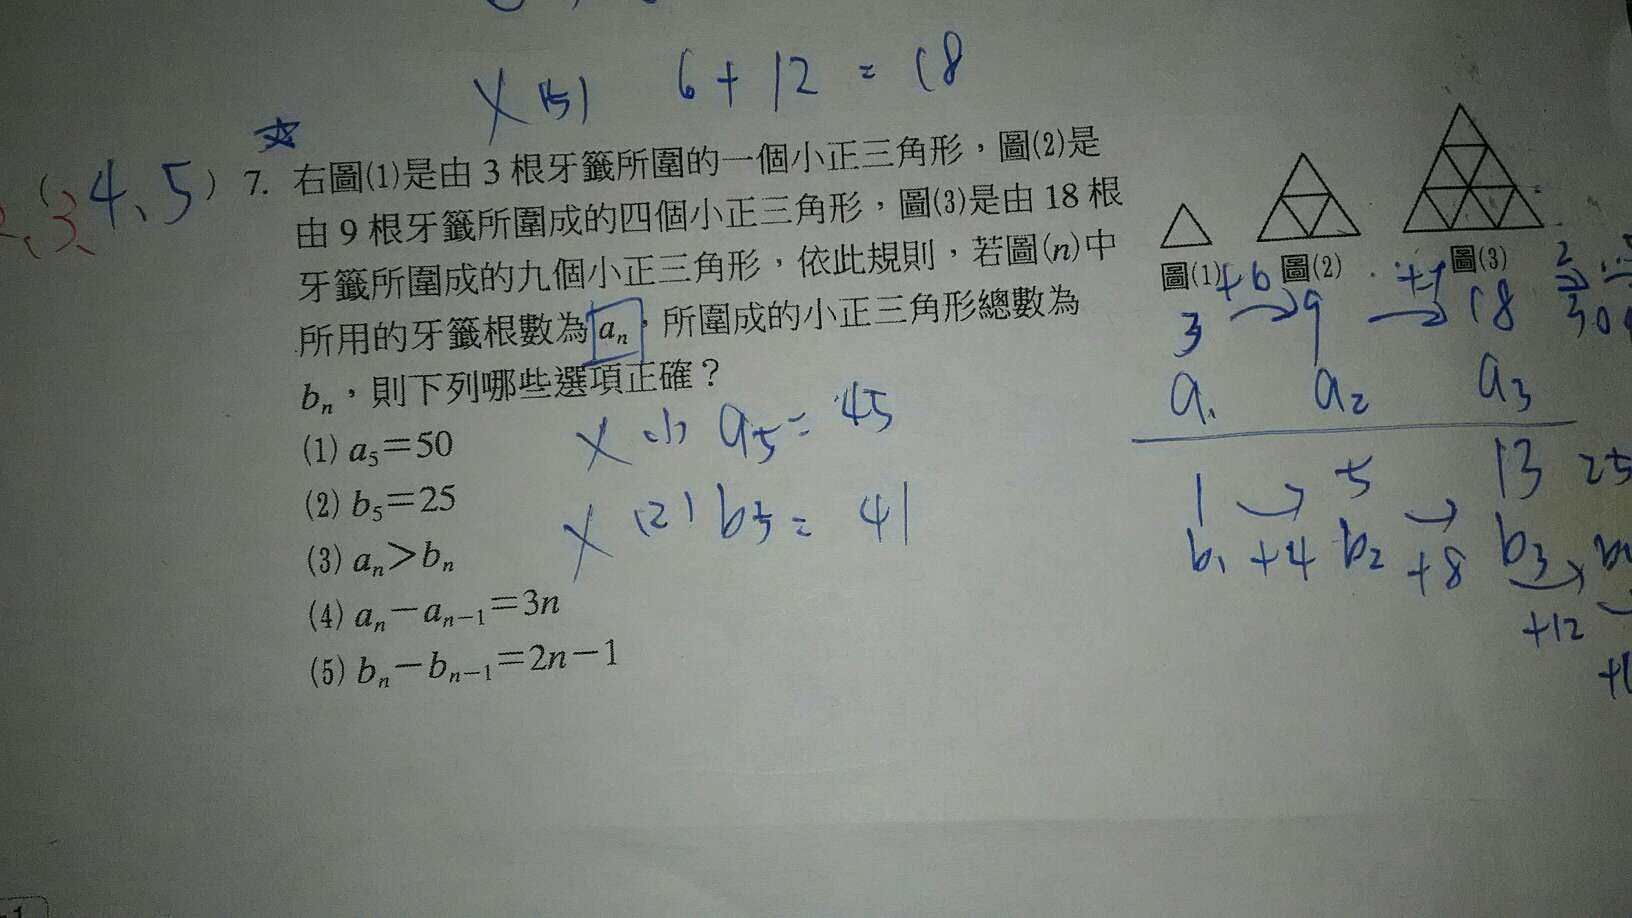 X (5) 6+12=18
☆
(2、3、4、5) 7. 右圖(1)是由 3 根牙籤所圍的一個小正三角形，圖(2)是
由 9 根牙籤所圍成的四個小正三角形，圖(3)是由 18 根
牙籤所圍成的九個小正三角形，依此規則，若圖(n)中
所用的牙籤根數為 aₙ，所圍成的小正三角形總數為
bₙ，則下列哪些選項正確？
(1) a₅=50
(2) b₅=25
(3) aₙ>bₙ
(4) aₙ－aₙ₋₁=3n
(5) bₙ－bₙ₋₁=2n－1
X (1) a₅=45
X (2) b₅=41
圖(1) 圖(2) 圖(3)
+6
3 9 18 30
a₁ a₂ a₃
1 5 13 25
b₁ +4 b₂ +8 b₃
+12
-1